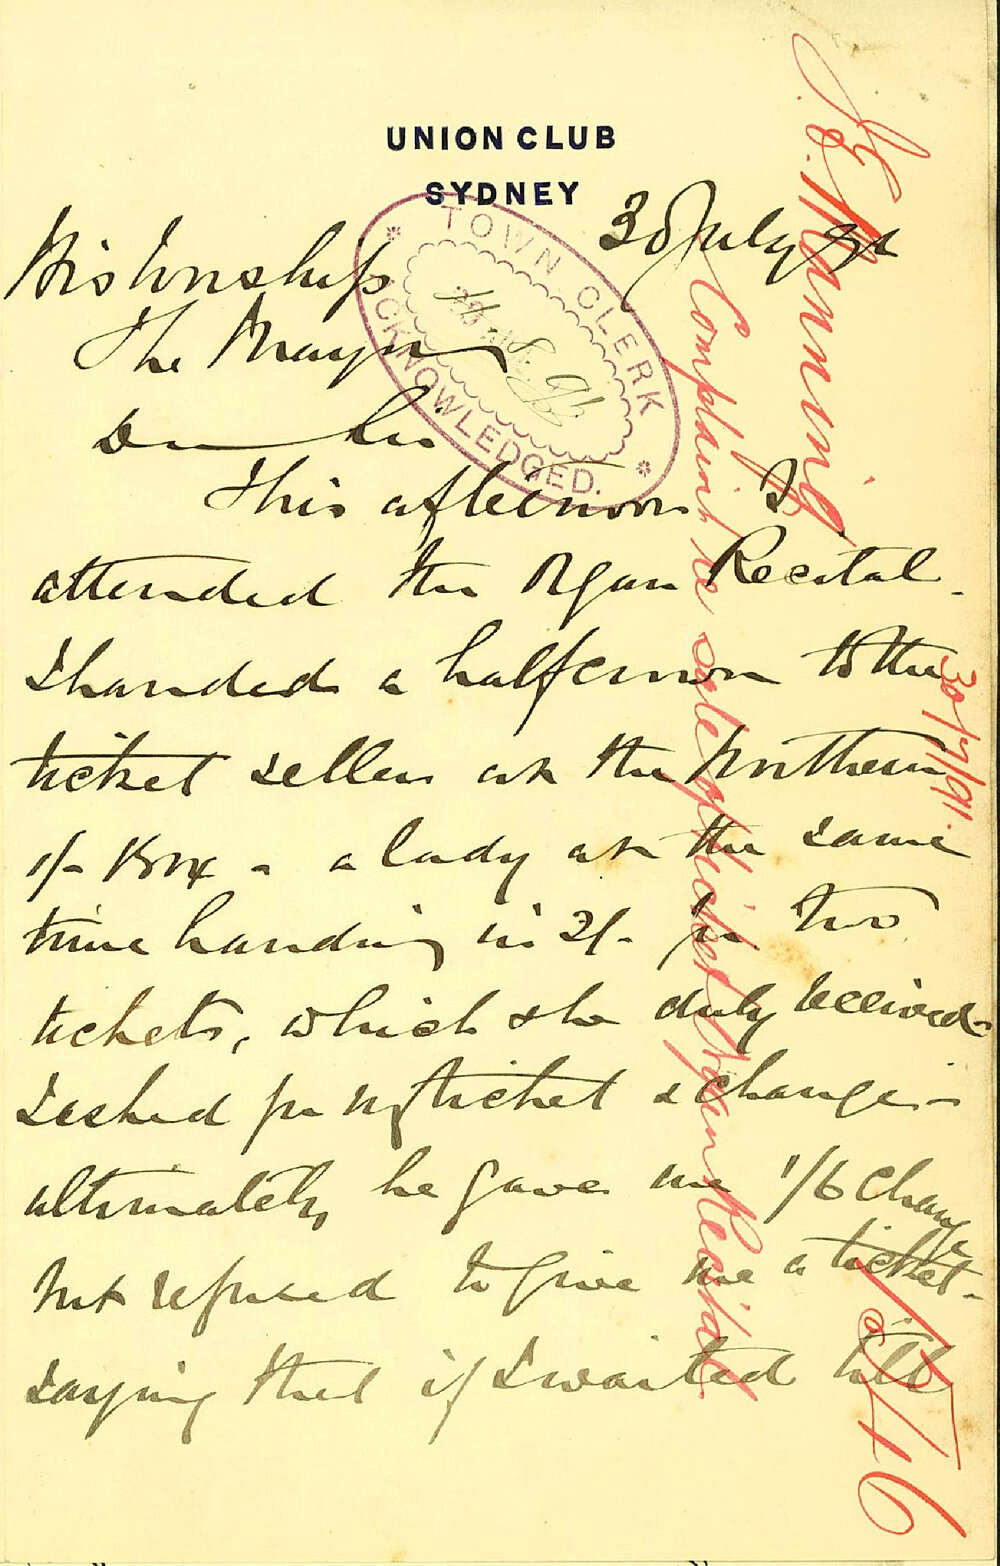 UNION CLUB
SYDNEY
30 July 91
His Worship
The Mayor
Dear Sir
This afternoon I
attended the Organ Recital.
I handed a half crown to the
ticket seller at the Northern
1/- Box - a lady at the same
time handing in 2/- for two
tickets, which she duly received -
I asked for my ticket & change -
ultimately he gave me 1/6 change
but refused to give me a ticket -
saying that if I waited till
TOWN CLERK
ACKNOWLEDGED.
Manning
30/7/91.
Complaint re sale of ticket Organ Recital